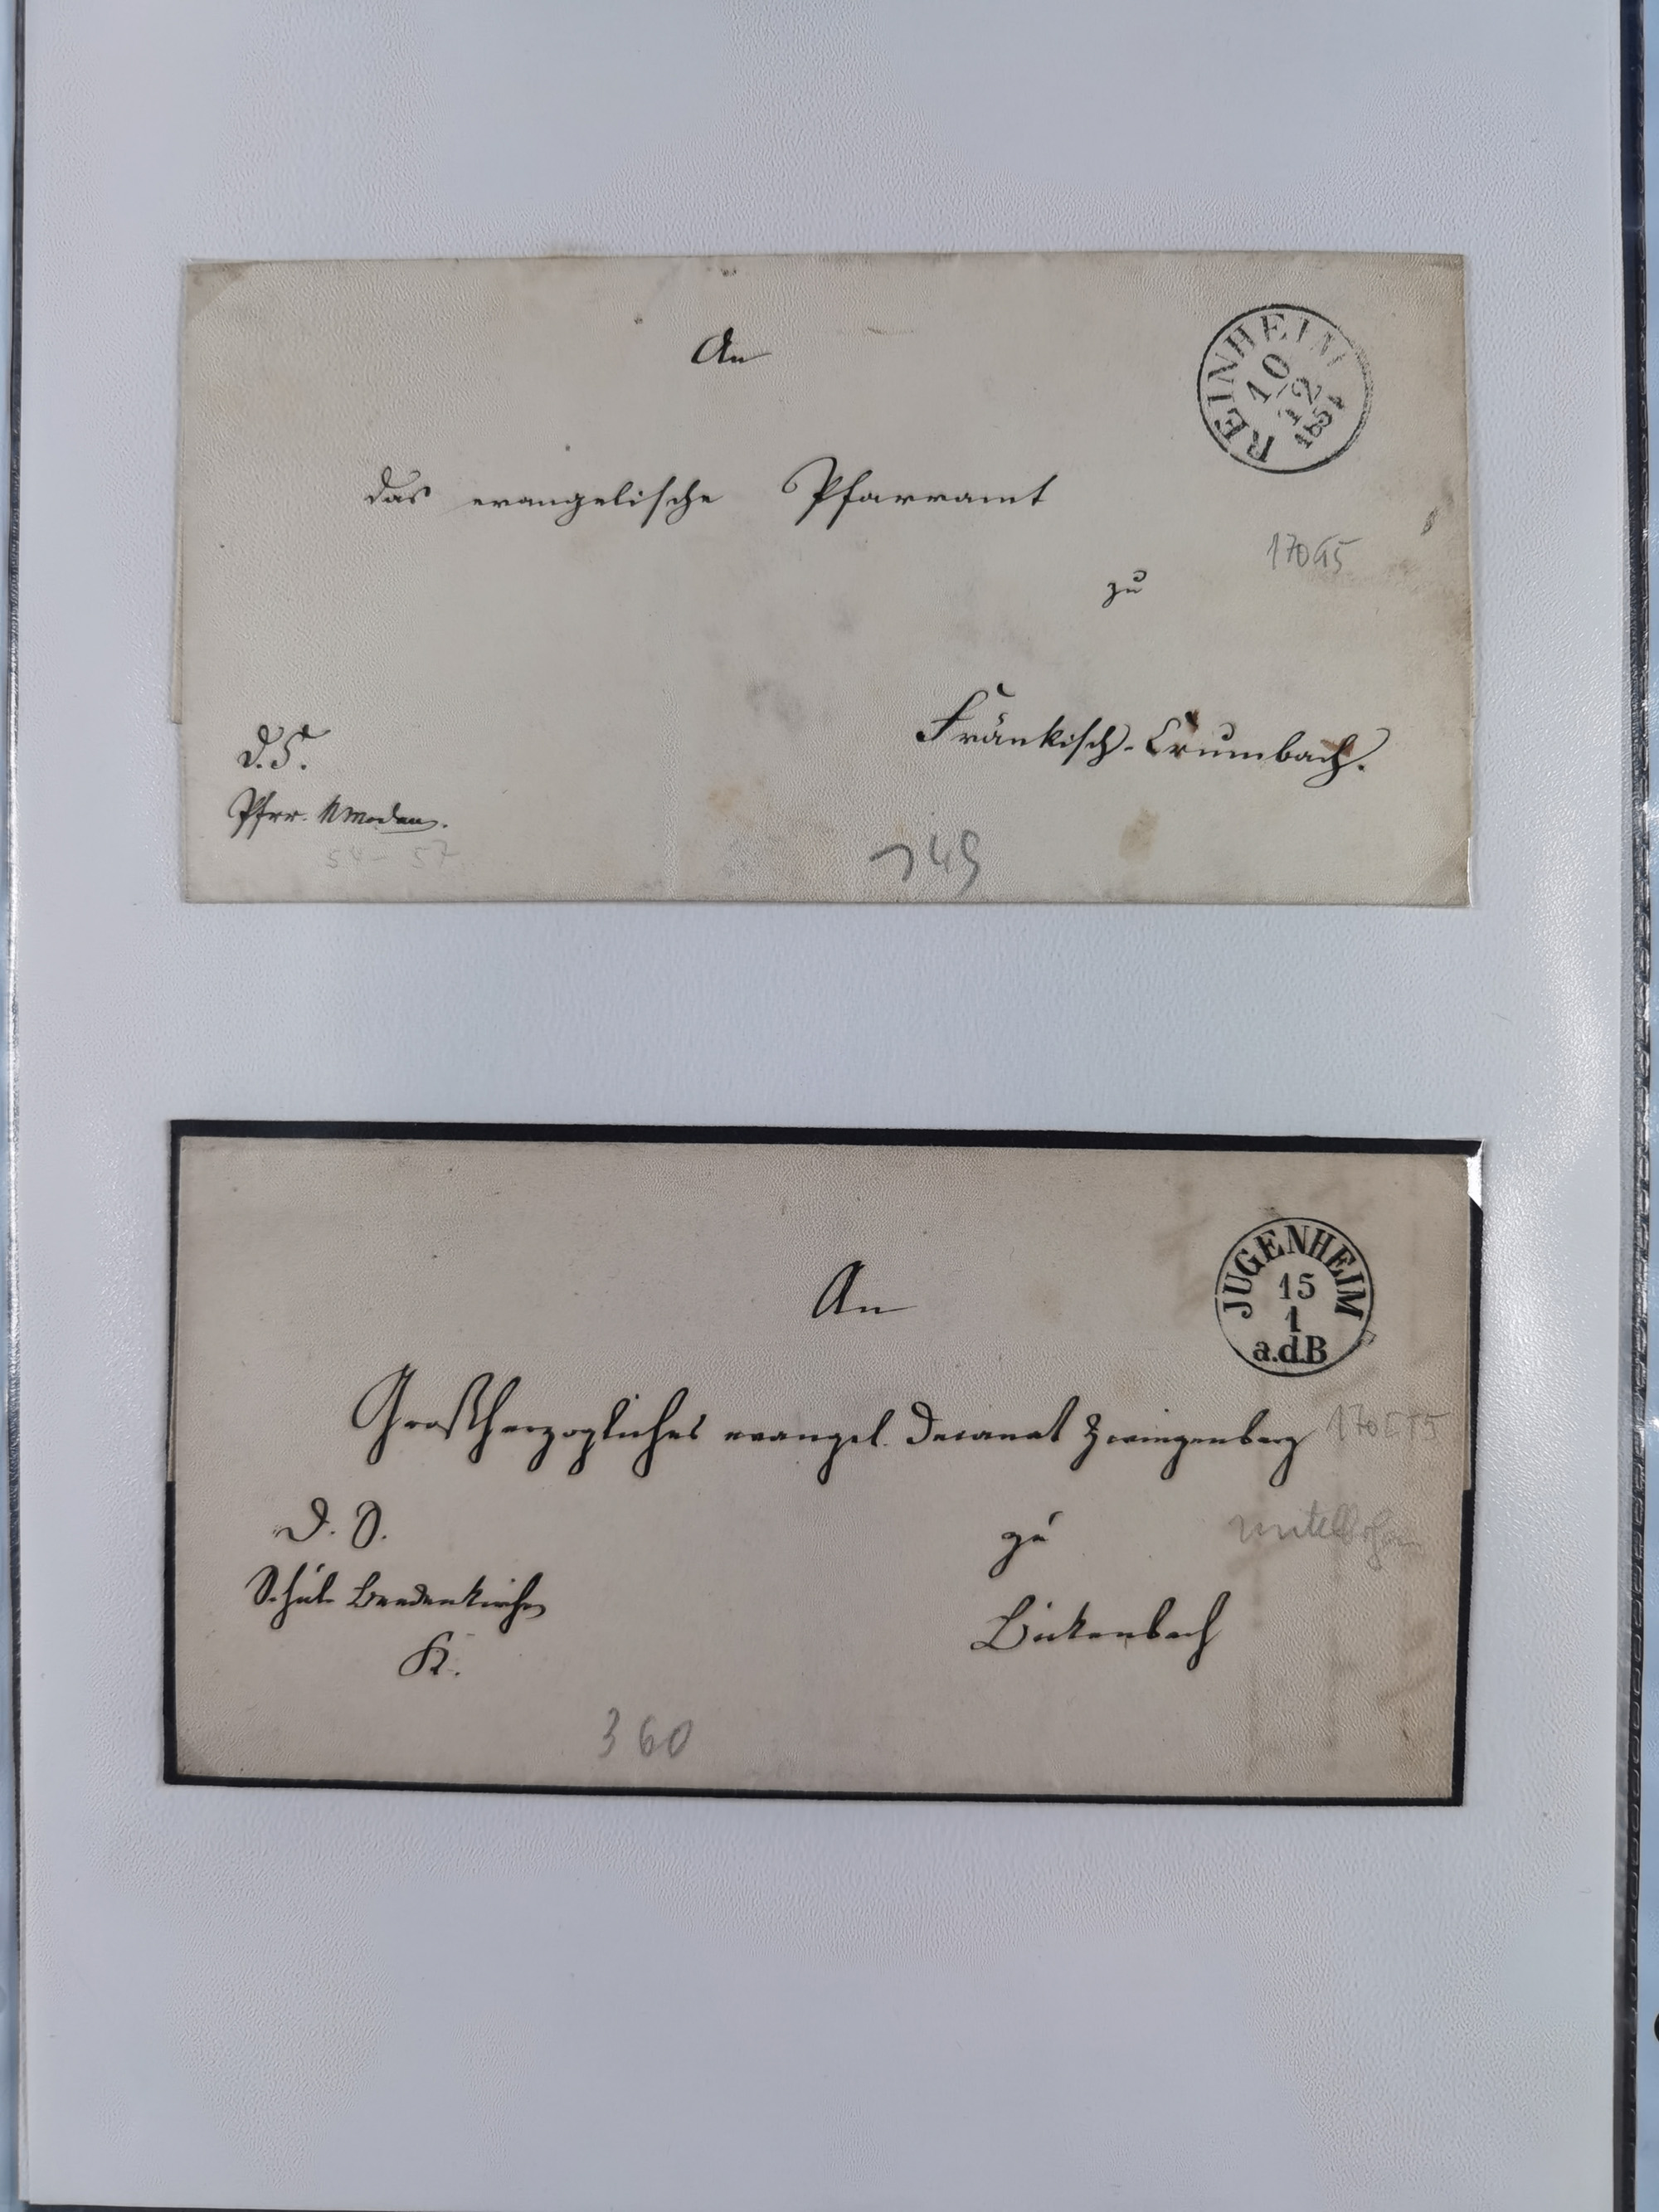 An
REINHEIM
10
12
185
das evangelische Pfarramt
zu
Fränkisch-Crumbach.
D.S.
Pfrr.
54-57
149
An
JUGENHEIM
15
1
a.d.B
Großherzogliches evangel. Decanat Zwingenberg
D. S.
zu
Schul- Beedenkirchen
Bickenbach
K.
360